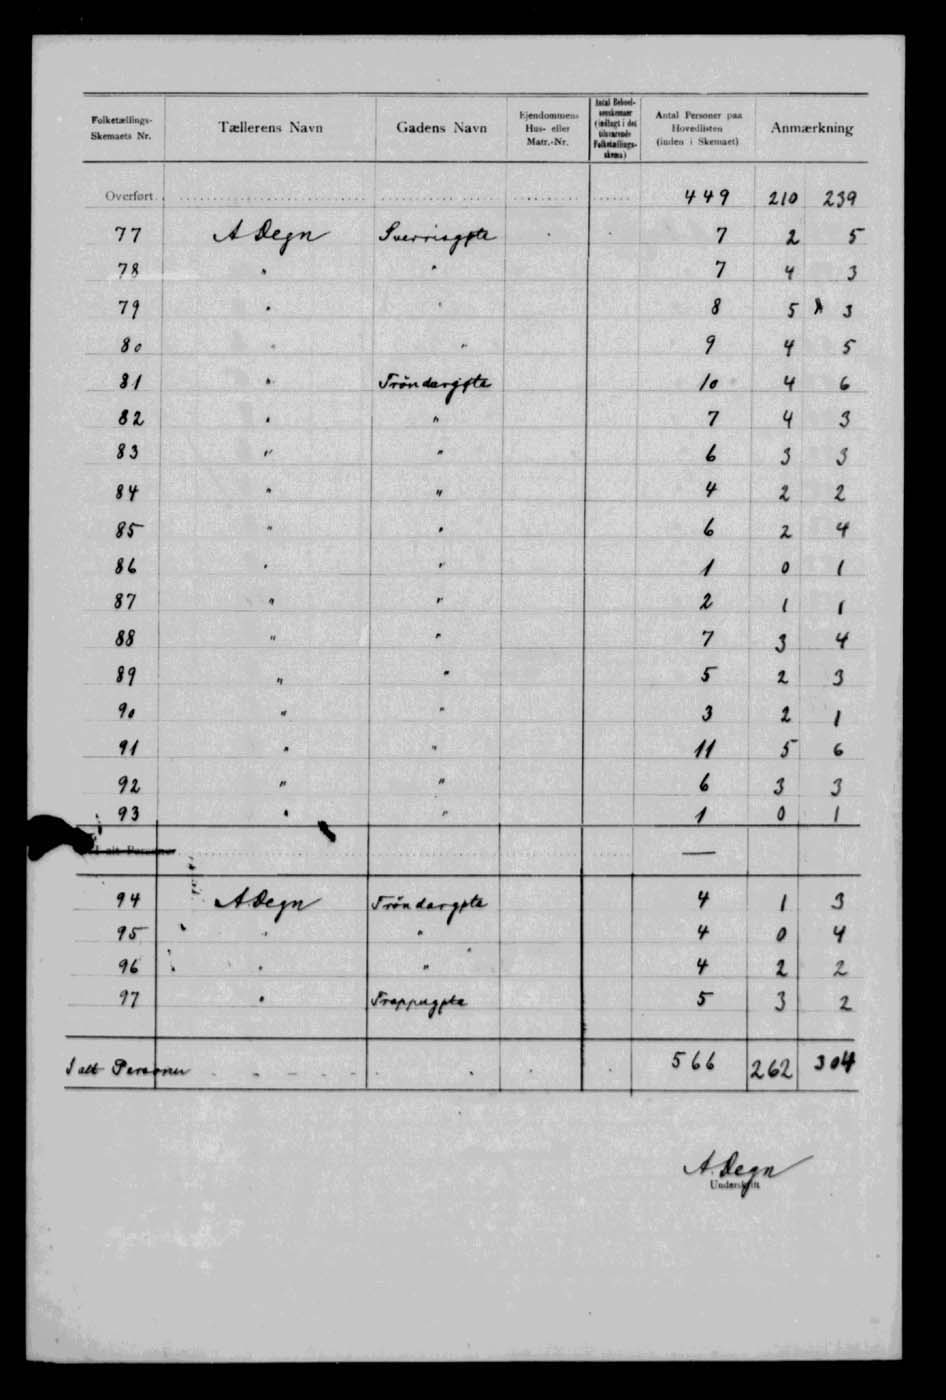 Folketællings-Skemaets Nr. Tællerens Navn Gadens Navn Ejendommens Hus- eller Matr.-Nr. Antal Beboelsesskemaer (indlagt i det tilsvarende Folketællingsskema) Antal Personer paa Hovedlisten (inden i Skemaet) Anmærkning
Overført 449 210 239
77 A Degn Sverrisgøta 7 2 5
78 " " 7 4 3
79 " " 8 5 3
80 " " 9 4 5
81 " Tróndargøta 10 4 6
82 " " 7 4 3
83 " " 6 3 3
84 " " 4 2 2
85 " " 6 2 4
86 " " 1 0 1
87 " " 2 1 1
88 " " 7 3 4
89 " " 5 2 3
90 " " 3 2 1
91 " " 11 5 6
92 " " 6 3 3
93 " " 1 0 1
I alt Personer —
94 A. Degn Tróndargøta 4 1 3
95 " " 4 0 4
96 " " 4 2 2
97 " Trappugøta 5 3 2
I alt Personer 566 262 304
A. Degn
Underskrift